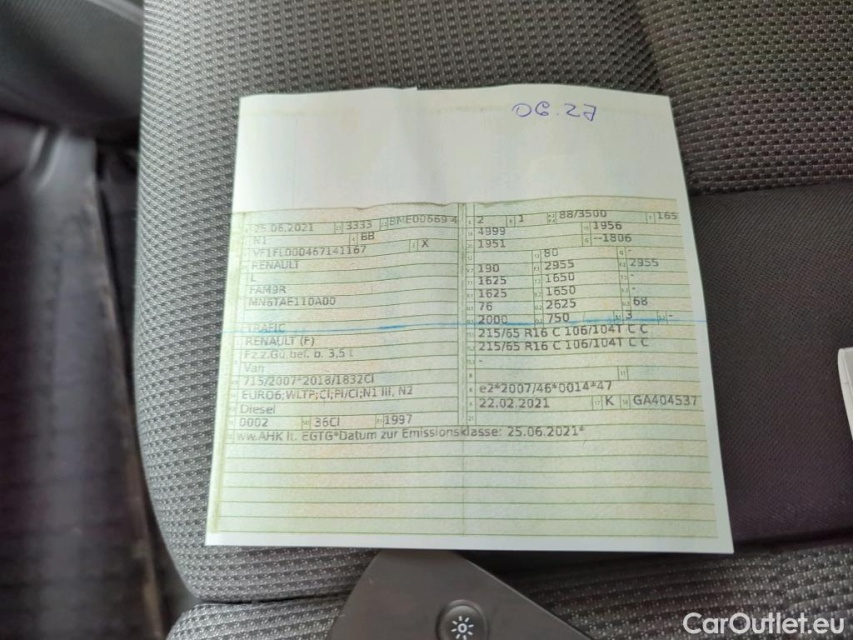 06.27
25.06.2021 3333 BME00669 4
N1 6B
VF1FL000467141167 X
RENAULT
L
FAM9R
MN6TAE110A00
TRAFIC
RENAULT (F)
Fz.z.Gü.bef. b. 3,5 t
Van
715/2007*2018/1832CI
EURO6;WLTP;CI;PI/CI;N1 III, N2
Diesel
0002 36CI 1997
2 1 88/3500 165
4999 1956
1951 --1806
80
190 2955 2955
1625 1650 -
1625 1650 -
76 2625 68
2000 750 3 -
215/65 R16 C 106/104T C C
215/65 R16 C 106/104T C C
-
e2*2007/46*0014*47
22.02.2021 K GA404537
ww.AHK lt. EGTG*Datum zur Emissionsklasse: 25.06.2021*
CarOutlet.eu